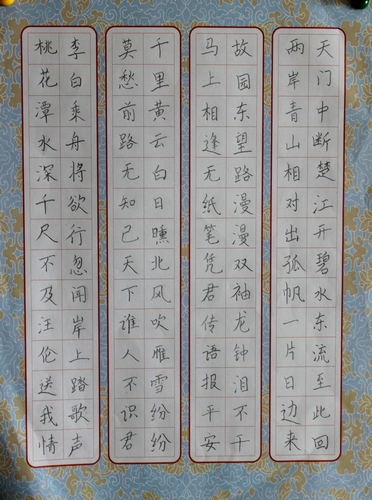 天门中断楚江开碧水东流至此回
两岸青山相对出孤帆一片日边来
故园东望路漫漫双袖龙钟泪不干
马上相逢无纸笔凭君传语报平安
千里黄云白日曛北风吹雁雪纷纷
莫愁前路无知己天下谁人不识君
李白乘舟将欲行忽闻岸上踏歌声
桃花潭水深千尺不及汪伦送我情